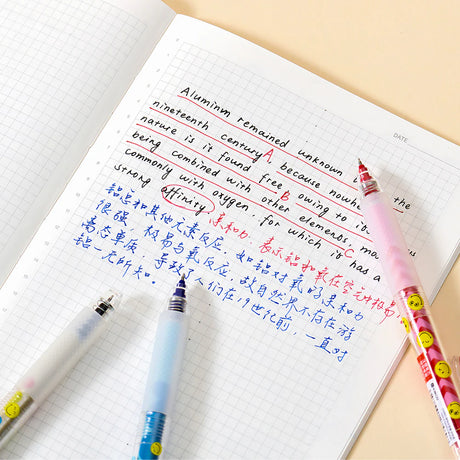 DATE
Aluminum remained unknown the
nineteenth century A, because nowhe
nature is it found free B owing to i
being combined with other elements, C mo
commonly with oxygen. for which it has a
strong affinity
亲和力. 表示铝和氧在空
铝总和其他元素反应. 如铝对氧的亲和力
很强, 极易与氧反应. 故自然界不存在游
离态单质, 导致了人们在19世纪前, 一直对
铝一无所知.